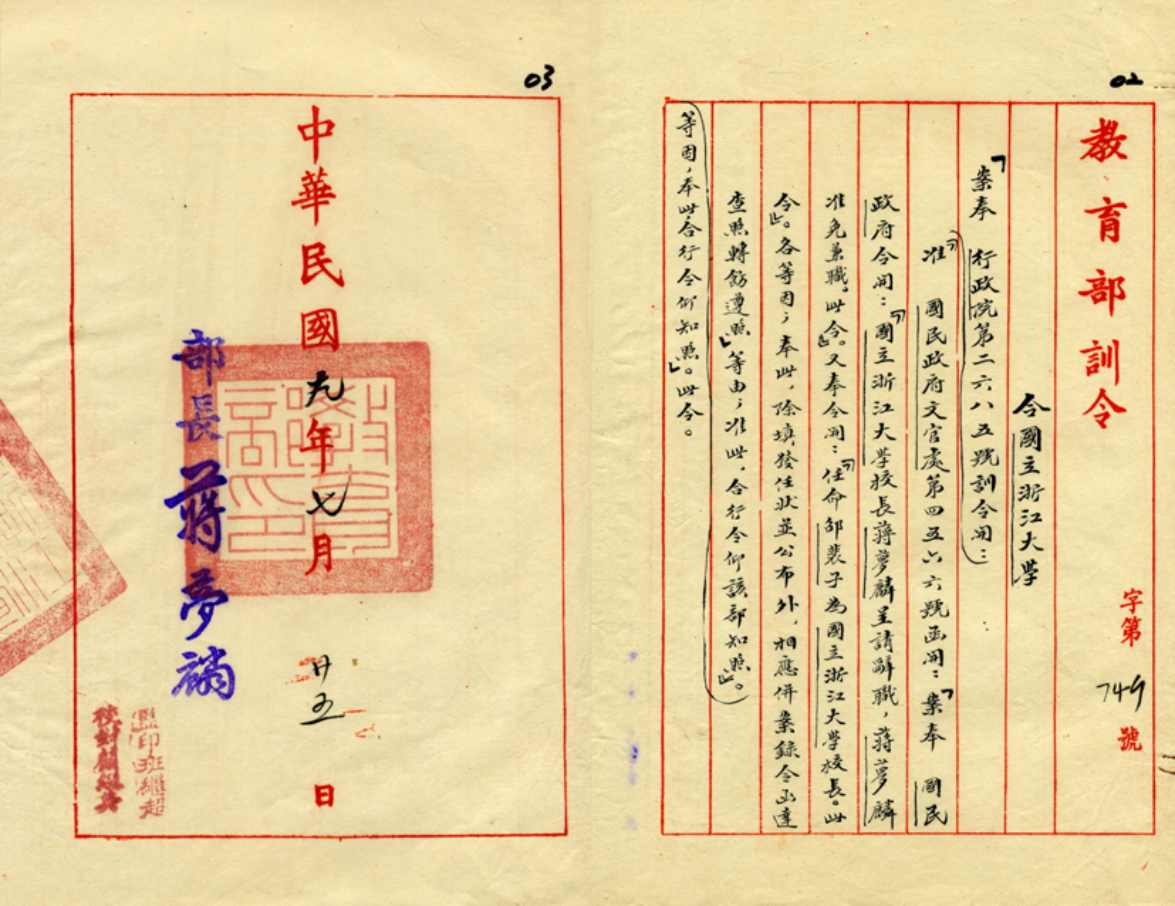 02
教育部訓令
字第749號
令國立浙江大学
「案奉 行政院第二六八五號訓令開：
「准 國民政府文官處第四五六六號函開：「案奉 國民
政府令開：「國立浙江大学校長蔣夢麟呈請辭職，蔣夢麟
准免兼職。此令」。又奉令開：「任命邵裴子為國立浙江大学校長。此
令」。各等因；奉此，除填發任狀並公布外，相應併案錄令函達
查照轉飭遵照」等由；准此，合行令仰該部知照」。
等因，奉此合行令仰知照」。此令。
03
中華民國九年七月廿五日
部長蔣夢麟
監印班繼超
校對